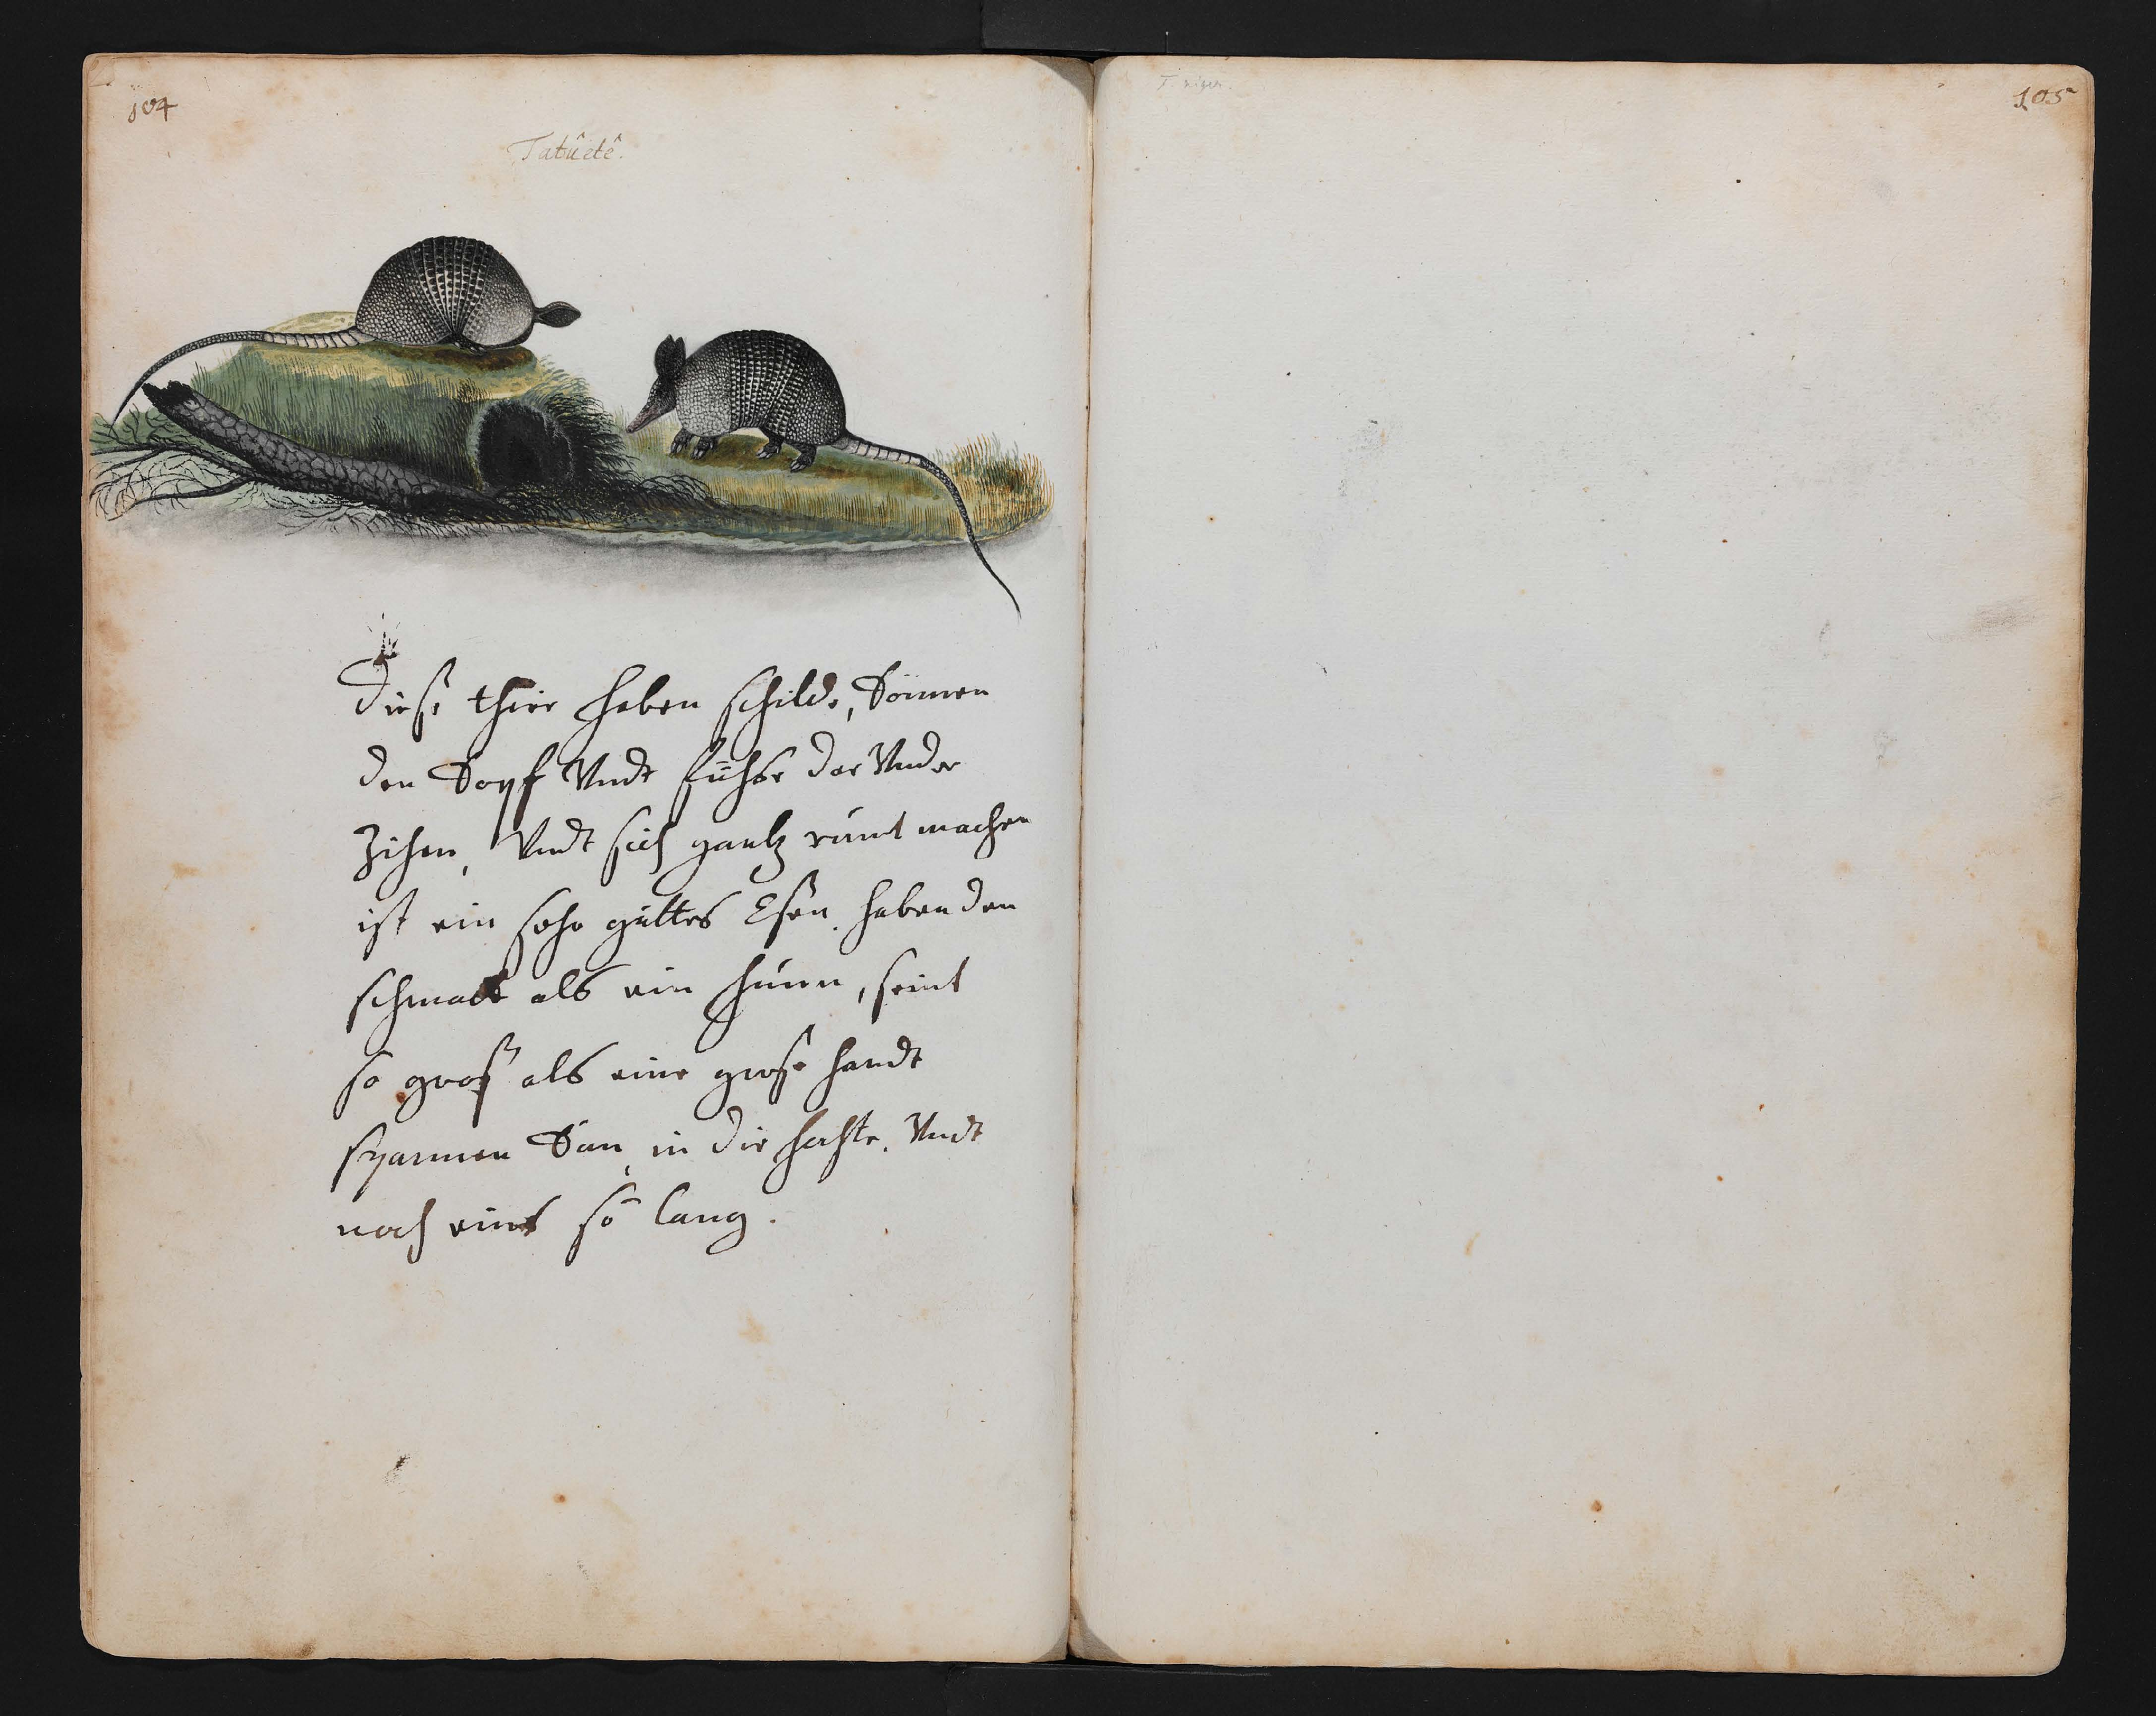 104
Tatûetê.
Diese thier haben schilde, können
den kopf Undt fühse dar Under
Zihen, Undt sich gantz runt machen
ist ein sehr guttes Esen. haben den
schmack als ein huun, seint
so groß als eine grose handt
spannen kan in die hochte. Undt
noch eins so lang.
105